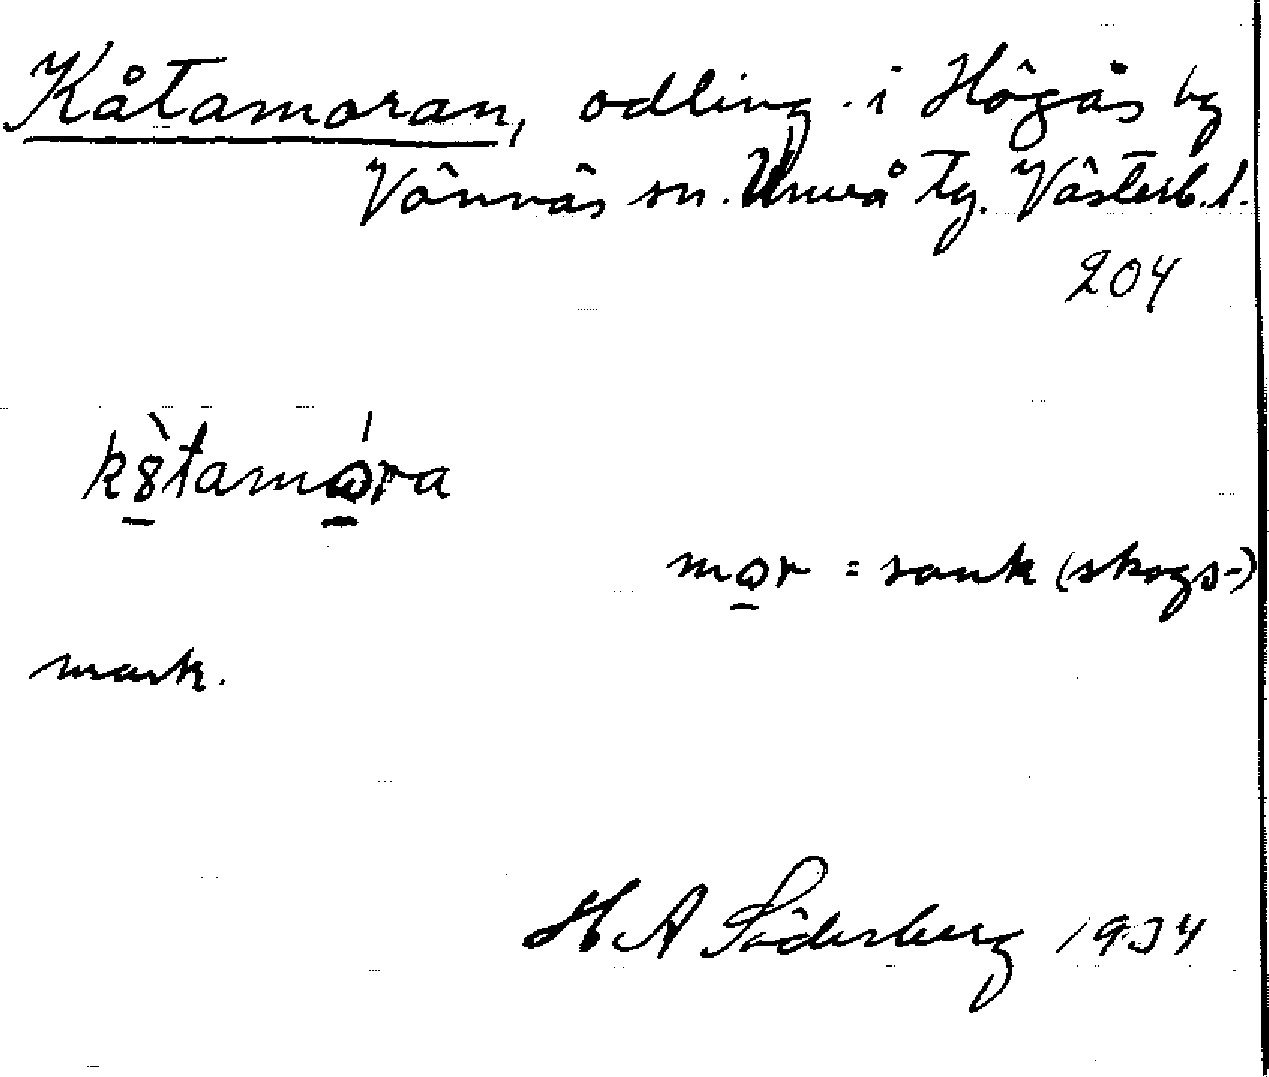 Kåtamoran, odling i Högås by
Vännäs sn. Umeå tg. Västerb. l.
204
k8̀tamώra
mωr = sank (skogs-)
mark.
H A Söderberg 1934